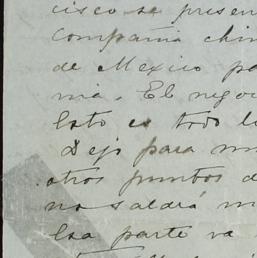 cisco se presen
Compañia chin
de Mexico pa
nia. El negoci
Esto es todo l
Dejo para m
otros puntos d
no saldrá m
Esa parte va